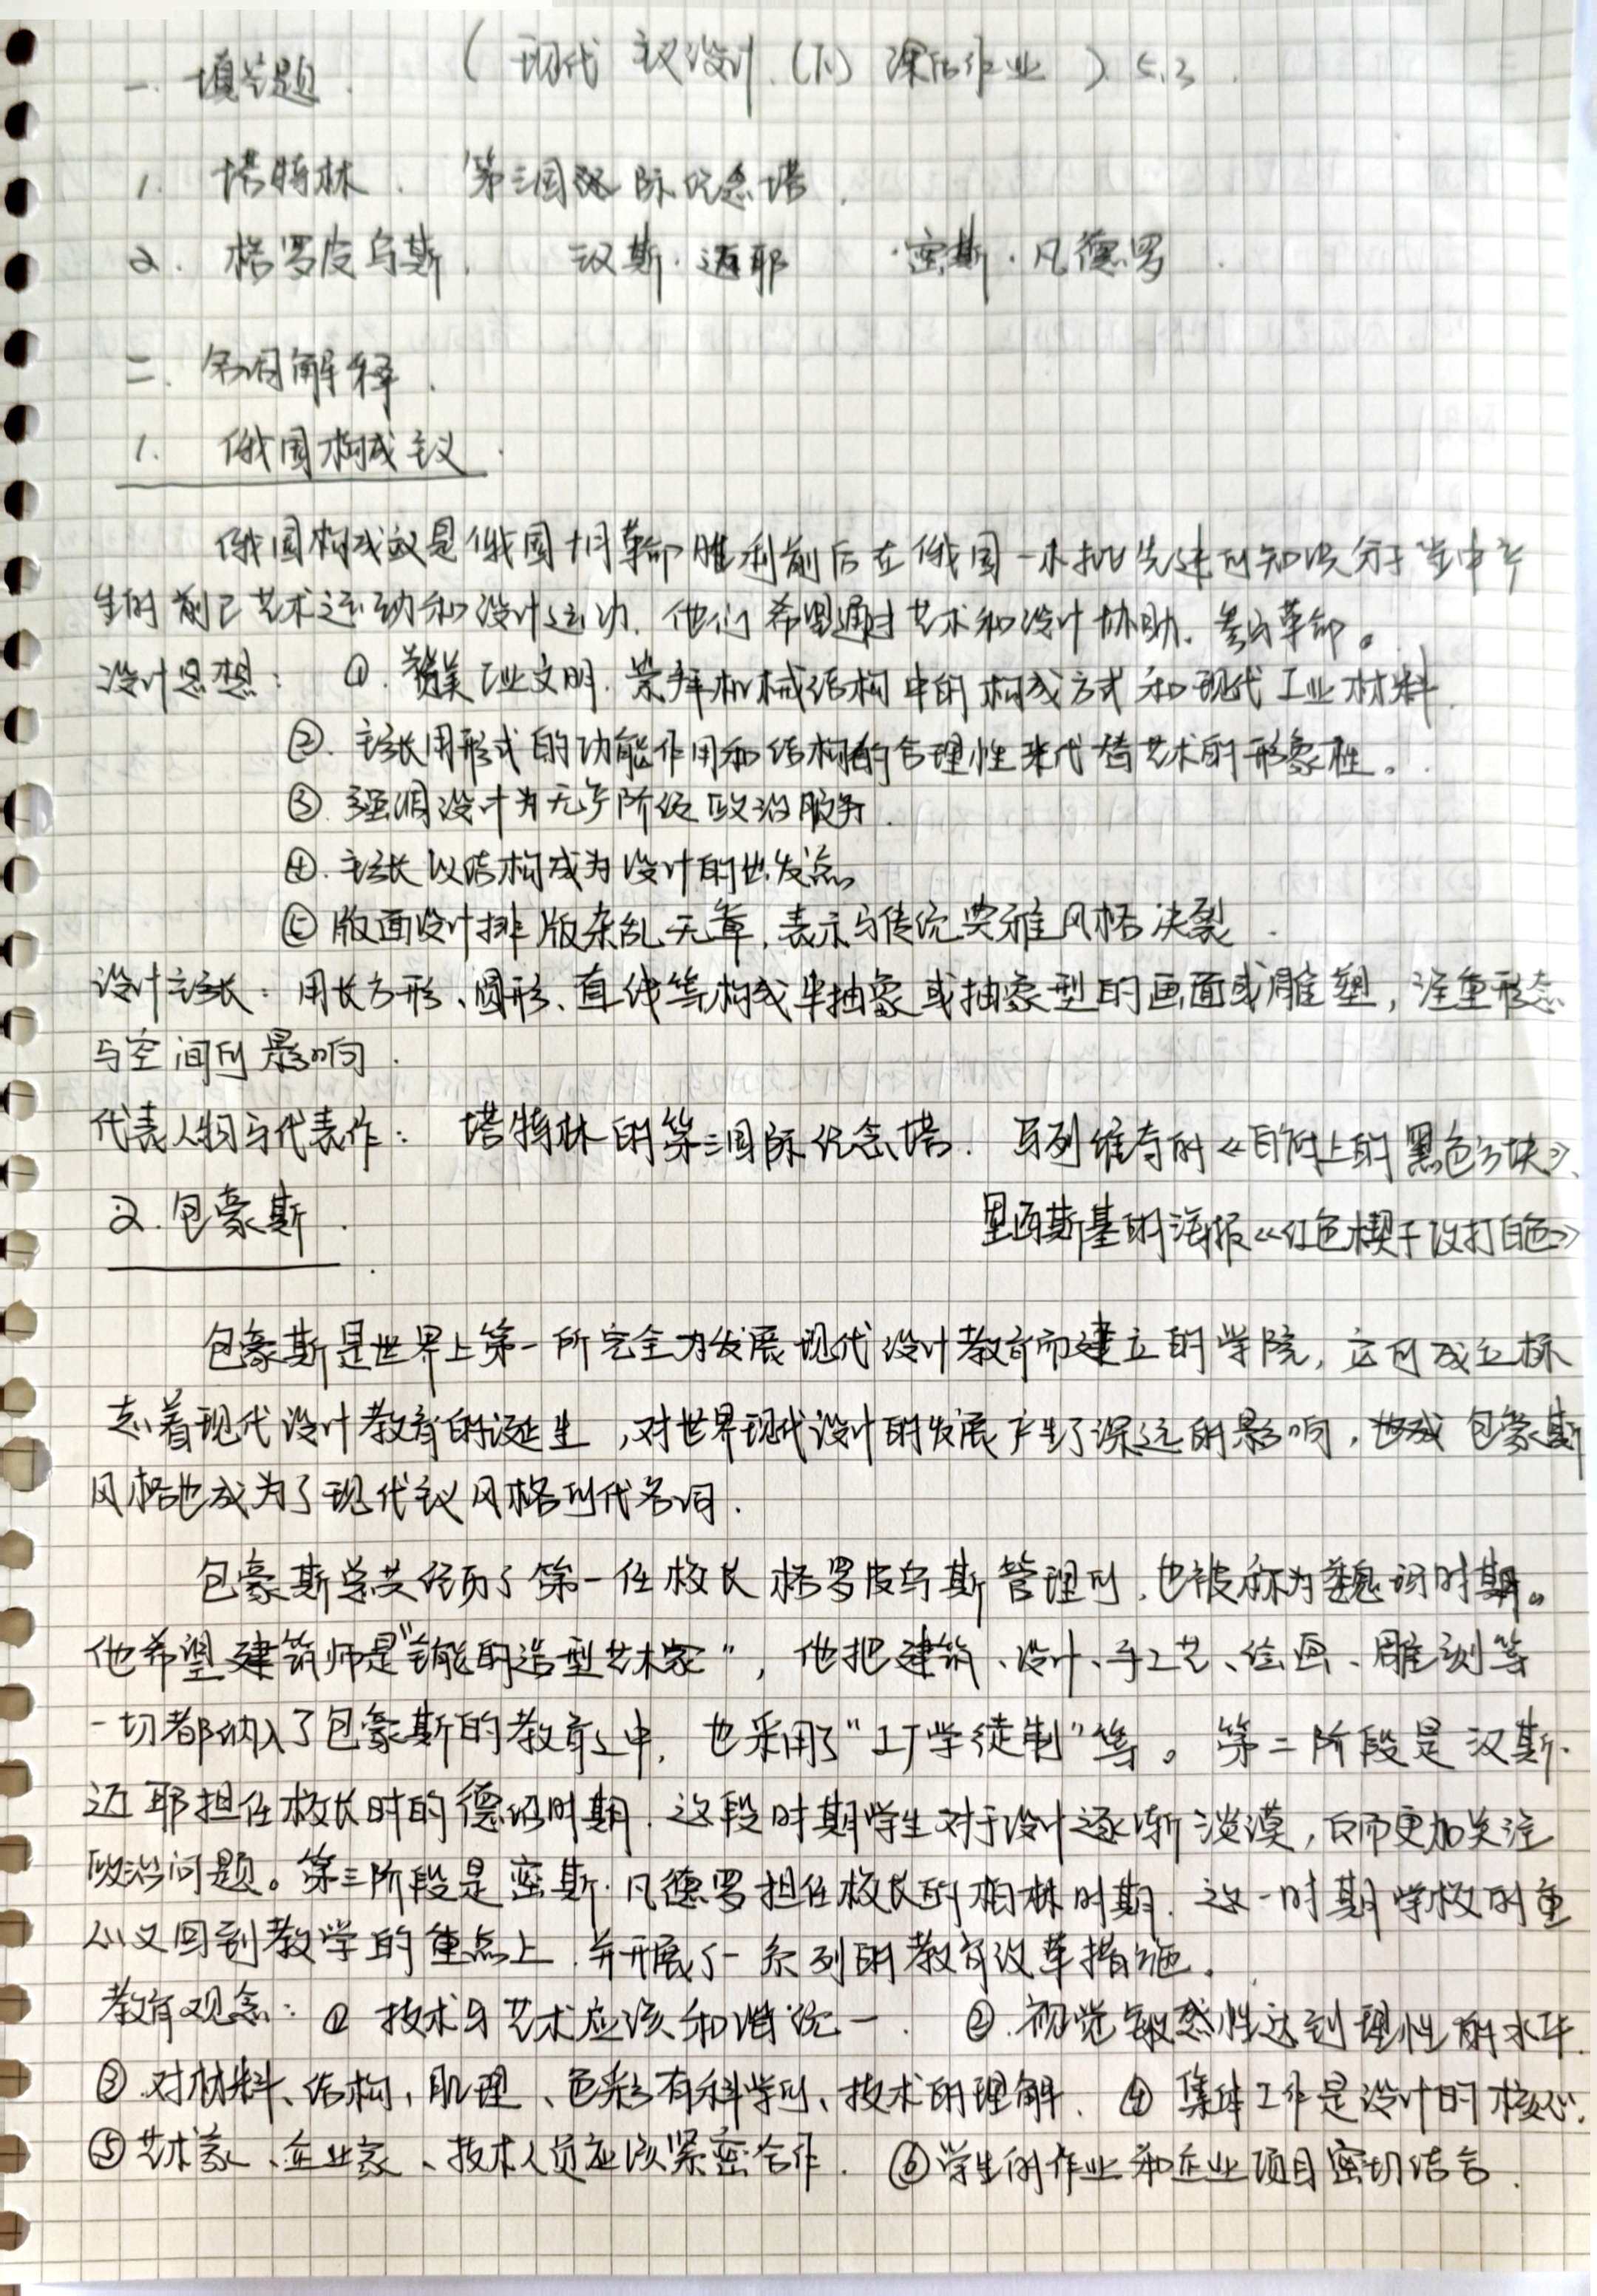 (现代主义设计(下)课后作业) 5.3
一. 填空题.
1. 塔特林. 第三国际纪念塔.
2. 格罗皮乌斯. 汉斯·迈耶 密斯·凡德罗.
二. 名词解释.
1. 俄国构成主义.
俄国构成主义是俄国十月革命胜利前后在俄国一小批先进的知识分子当中产
生的前卫艺术运动和设计运动. 他们希望通过艺术和设计协助、参与革命。
设计思想: ①. 赞美工业文明. 崇拜机械结构中的构成方式和现代工业材料.
②. 主张用形式的功能作用和结构的合理性来代替艺术的形象性。
③. 强调设计为无产阶级政治服务.
④. 主张以结构成为设计的出发点
⑤ 版面设计排版杂乱无章, 表示与传统典雅风格决裂.
设计主张: 用长方形、圆形、直线等构成半抽象或抽象型的画面或雕塑, 注重形态
与空间的影响.
代表人物与代表作: 塔特林的第三国际纪念塔. 马列维奇的《白底上的黑色方块》.
里西斯基的海报《红色楔子攻打白色》
2. 包豪斯.
包豪斯是世界上第一所完全为发展现代设计教育而建立的学院, 它的成立标
志着现代设计教育的诞生, 对世界现代设计的发展产生了深远的影响, 包豪斯
风格也成为了现代主义风格的代名词.
包豪斯总共经历了第一任校长格罗皮乌斯管理的, 也被称为魏玛时期。
他希望建筑师是"全能的造型艺术家", 他把建筑、设计、手工艺、绘画、雕刻等
一切都纳入了包豪斯的教育之中, 也采用了"工厂学徒制"等。第二阶段是汉斯·
迈耶担任校长时的德绍时期. 这段时期学生对于设计逐渐淡漠, 反而更加关注
政治问题。第三阶段是密斯·凡德罗担任校长的柏林时期. 这一时期学校的重
心又回到教学的重点上. 并开展了一系列的教育改革措施.
教育观念: ① 技术与艺术应该和谐统一. ②. 视觉敏感性达到理性的水平.
③. 对材料、结构、肌理、色彩有科学的、技术的理解. ④ 集体工作是设计的核心.
⑤ 艺术家、企业家、技术人员应该紧密合作. ⑥ 学生的作业和企业项目密切结合.